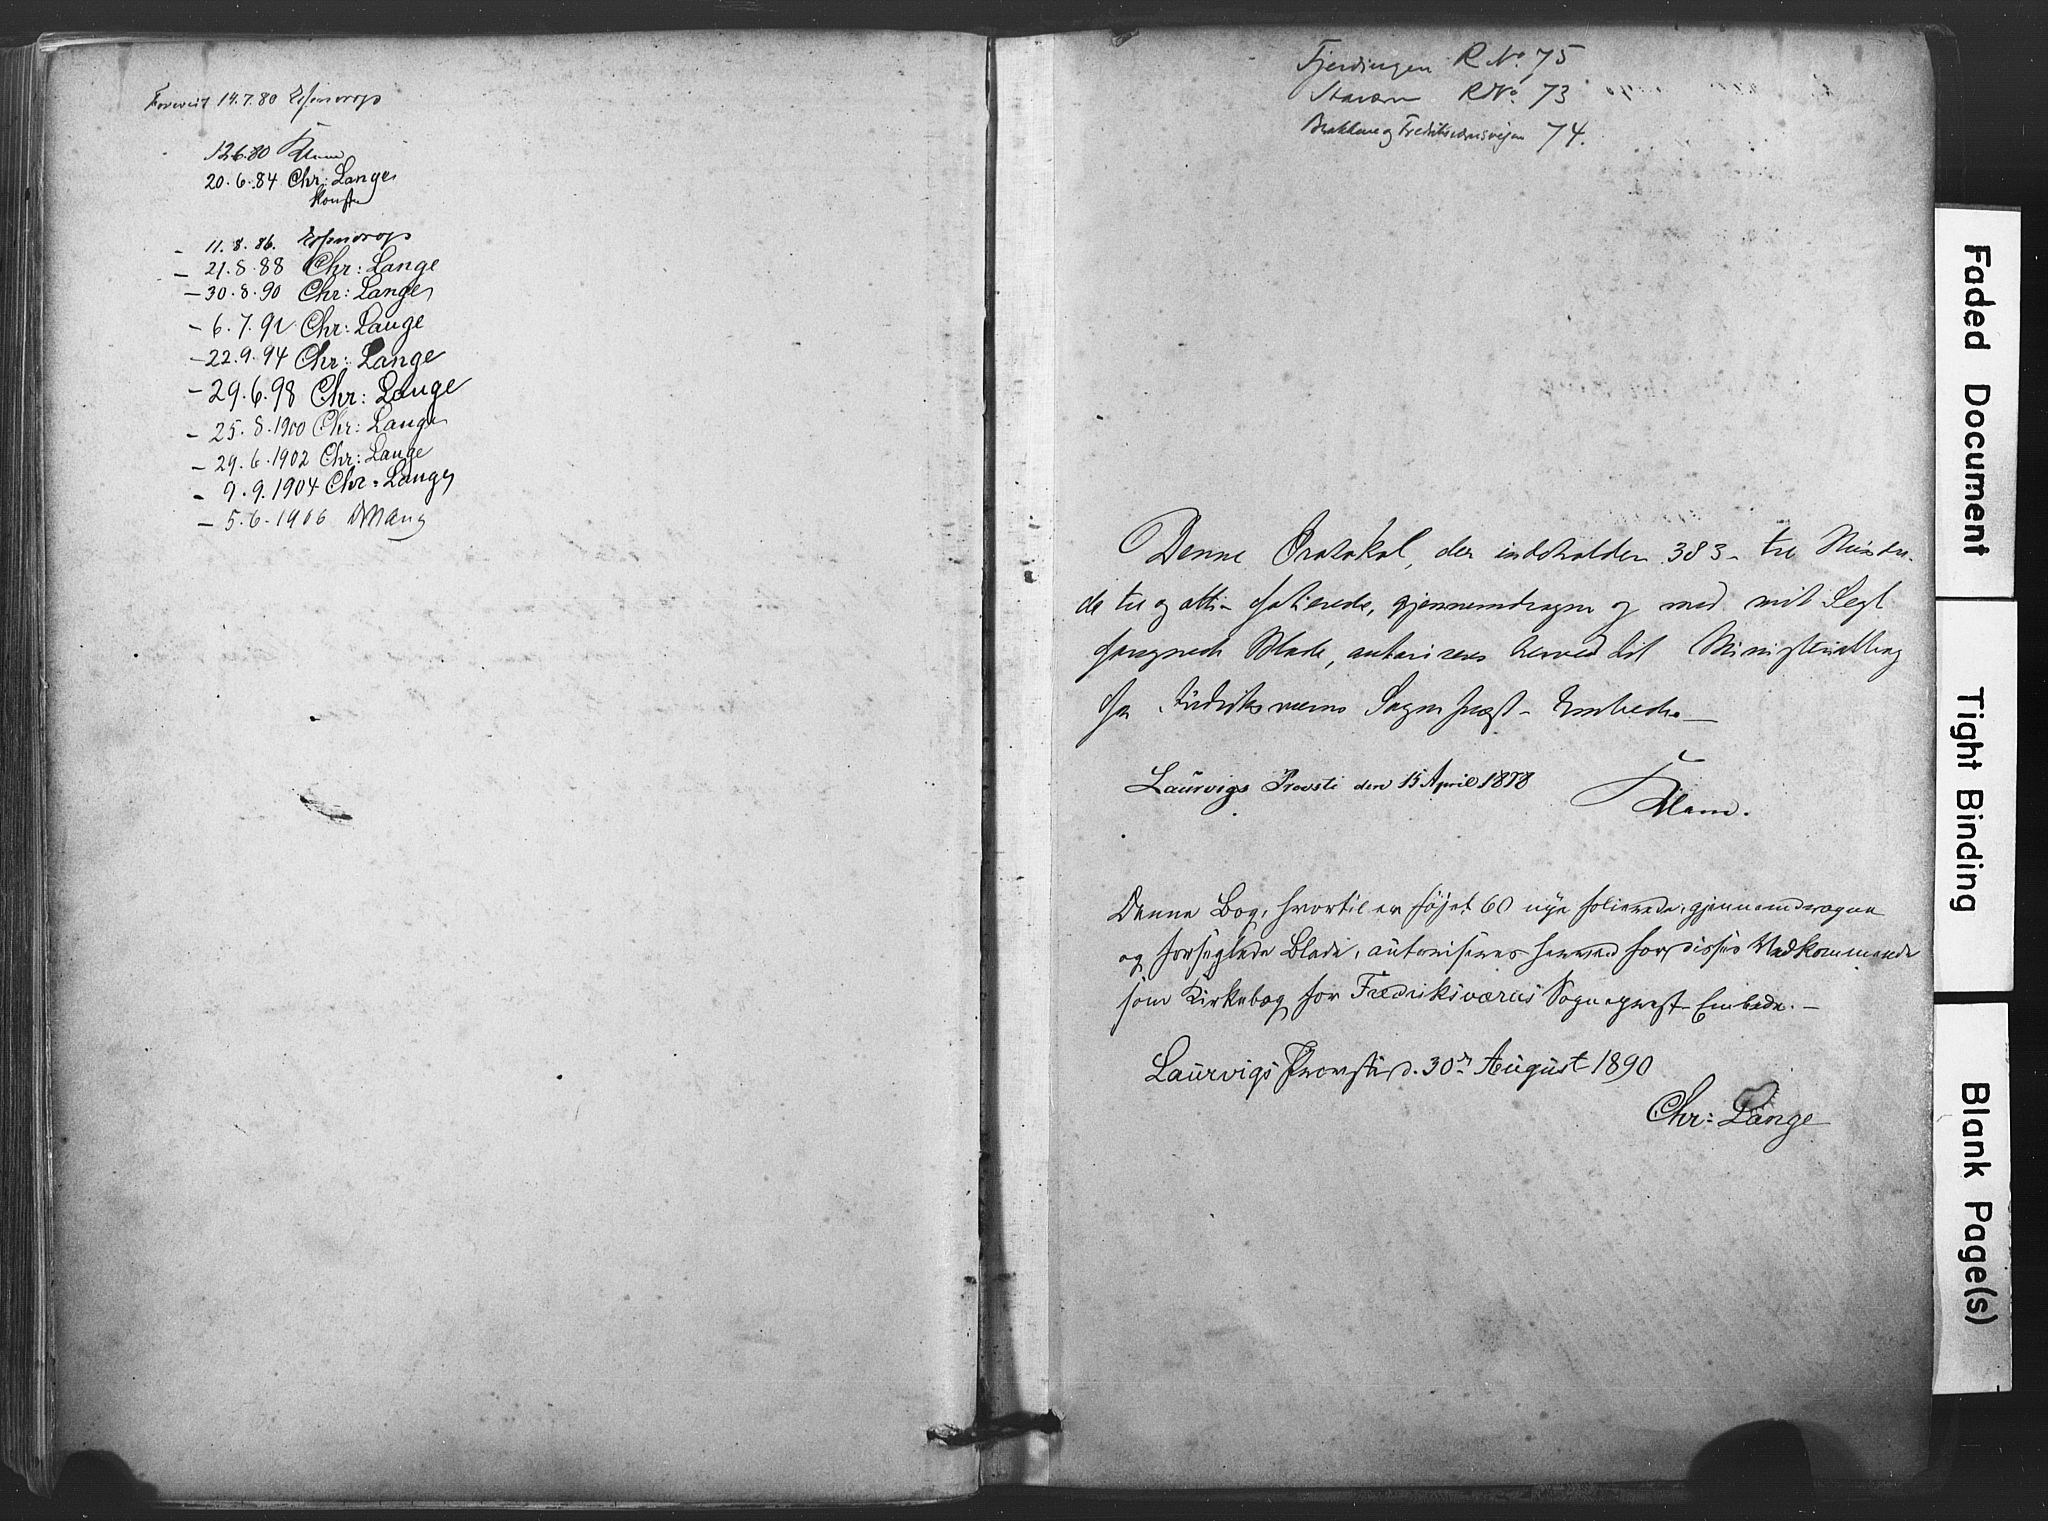 Forevist 14.7.80 Essendrop
12.6.80 Klem
20.6.84 Chr: Lange
Konst
- 11.8.86. Essendrop
- 21.8.88 Chr: Lange
- 30.8.90 Chr: Lange
- 6.7.92 Chr: Lange
- 22.9.94 Chr: Lange
- 29.6.98 Chr: Lange
- 25.8.1900 Chr: Lange
- 29.6.1902 Chr: Lange
- 9.9.1904 Chr: Lange
- 5.6.1906
Fjerdingen R No. 75
Stavern R No. 73
Brekkene og Fredriksværnsveien 74.
Denne Protokol, der indeholder 383 - tre Hundre-
de tre og otti - folierede, gjennemdragne og med mit Segl
forsynede Blade, autoriseres herved til Ministerialbog
for Fredriksværns Sognepræst - Embede. —
Laurvigs Provsti den 15 April 1878
Klem.
Denne Bog, hvortil er føjet 60 nye folierede, gjennemdragne
og forseglede Blade, autoriseres herved for disses Vedkommende
som Kirkebog for Fredriksværns Sognepræst-Embede. —
Laurvigs Provsti d. 30te August 1890
Chr: Lange
Faded Document
Tight Binding
Blank Page(s)